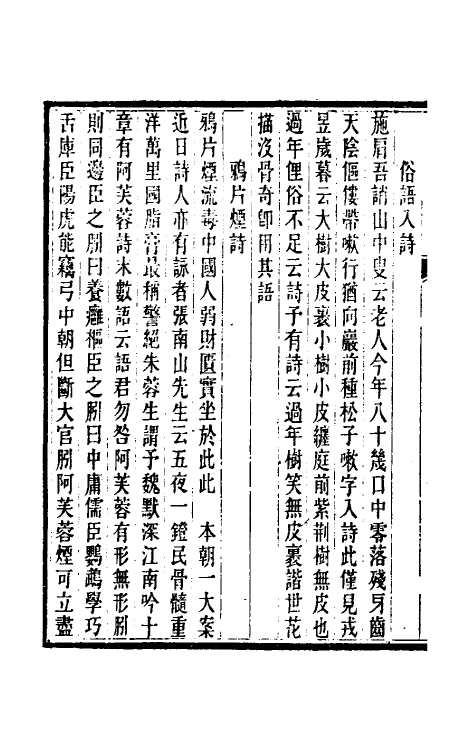 俗語入詩
施肩吾誚山中叟云老人今年八十幾口中零落殘牙齒
天陰傴僂帶嗽行猶向巖前種松子嗽字入詩此僅見戎
昱歲暮云大樹大皮裹小樹小皮纏庭前紫荆樹無皮也
過年俚俗不足云詩予有詩云過年樹笑無皮裹諧世花
描沒骨奇卽用其語
鴉片煙詩
鴉片煙流毒中國人弱財匱實坐於此此 本朝一大案
近日詩人亦有詠者張南山先生云五夜一鐙民骨髓重
洋萬里國脂膏最稱警絕朱蓉生謂予魏默深江南吟十
章有阿芙蓉詩末數語云語君勿咎阿芙蓉有形無形朒
則同邊臣之朒曰養癰樞臣之朒曰中庸儒臣鸚鵡學巧
舌庫臣陽虎能竊弓中朝但斷大官朒阿芙蓉煙可立盡